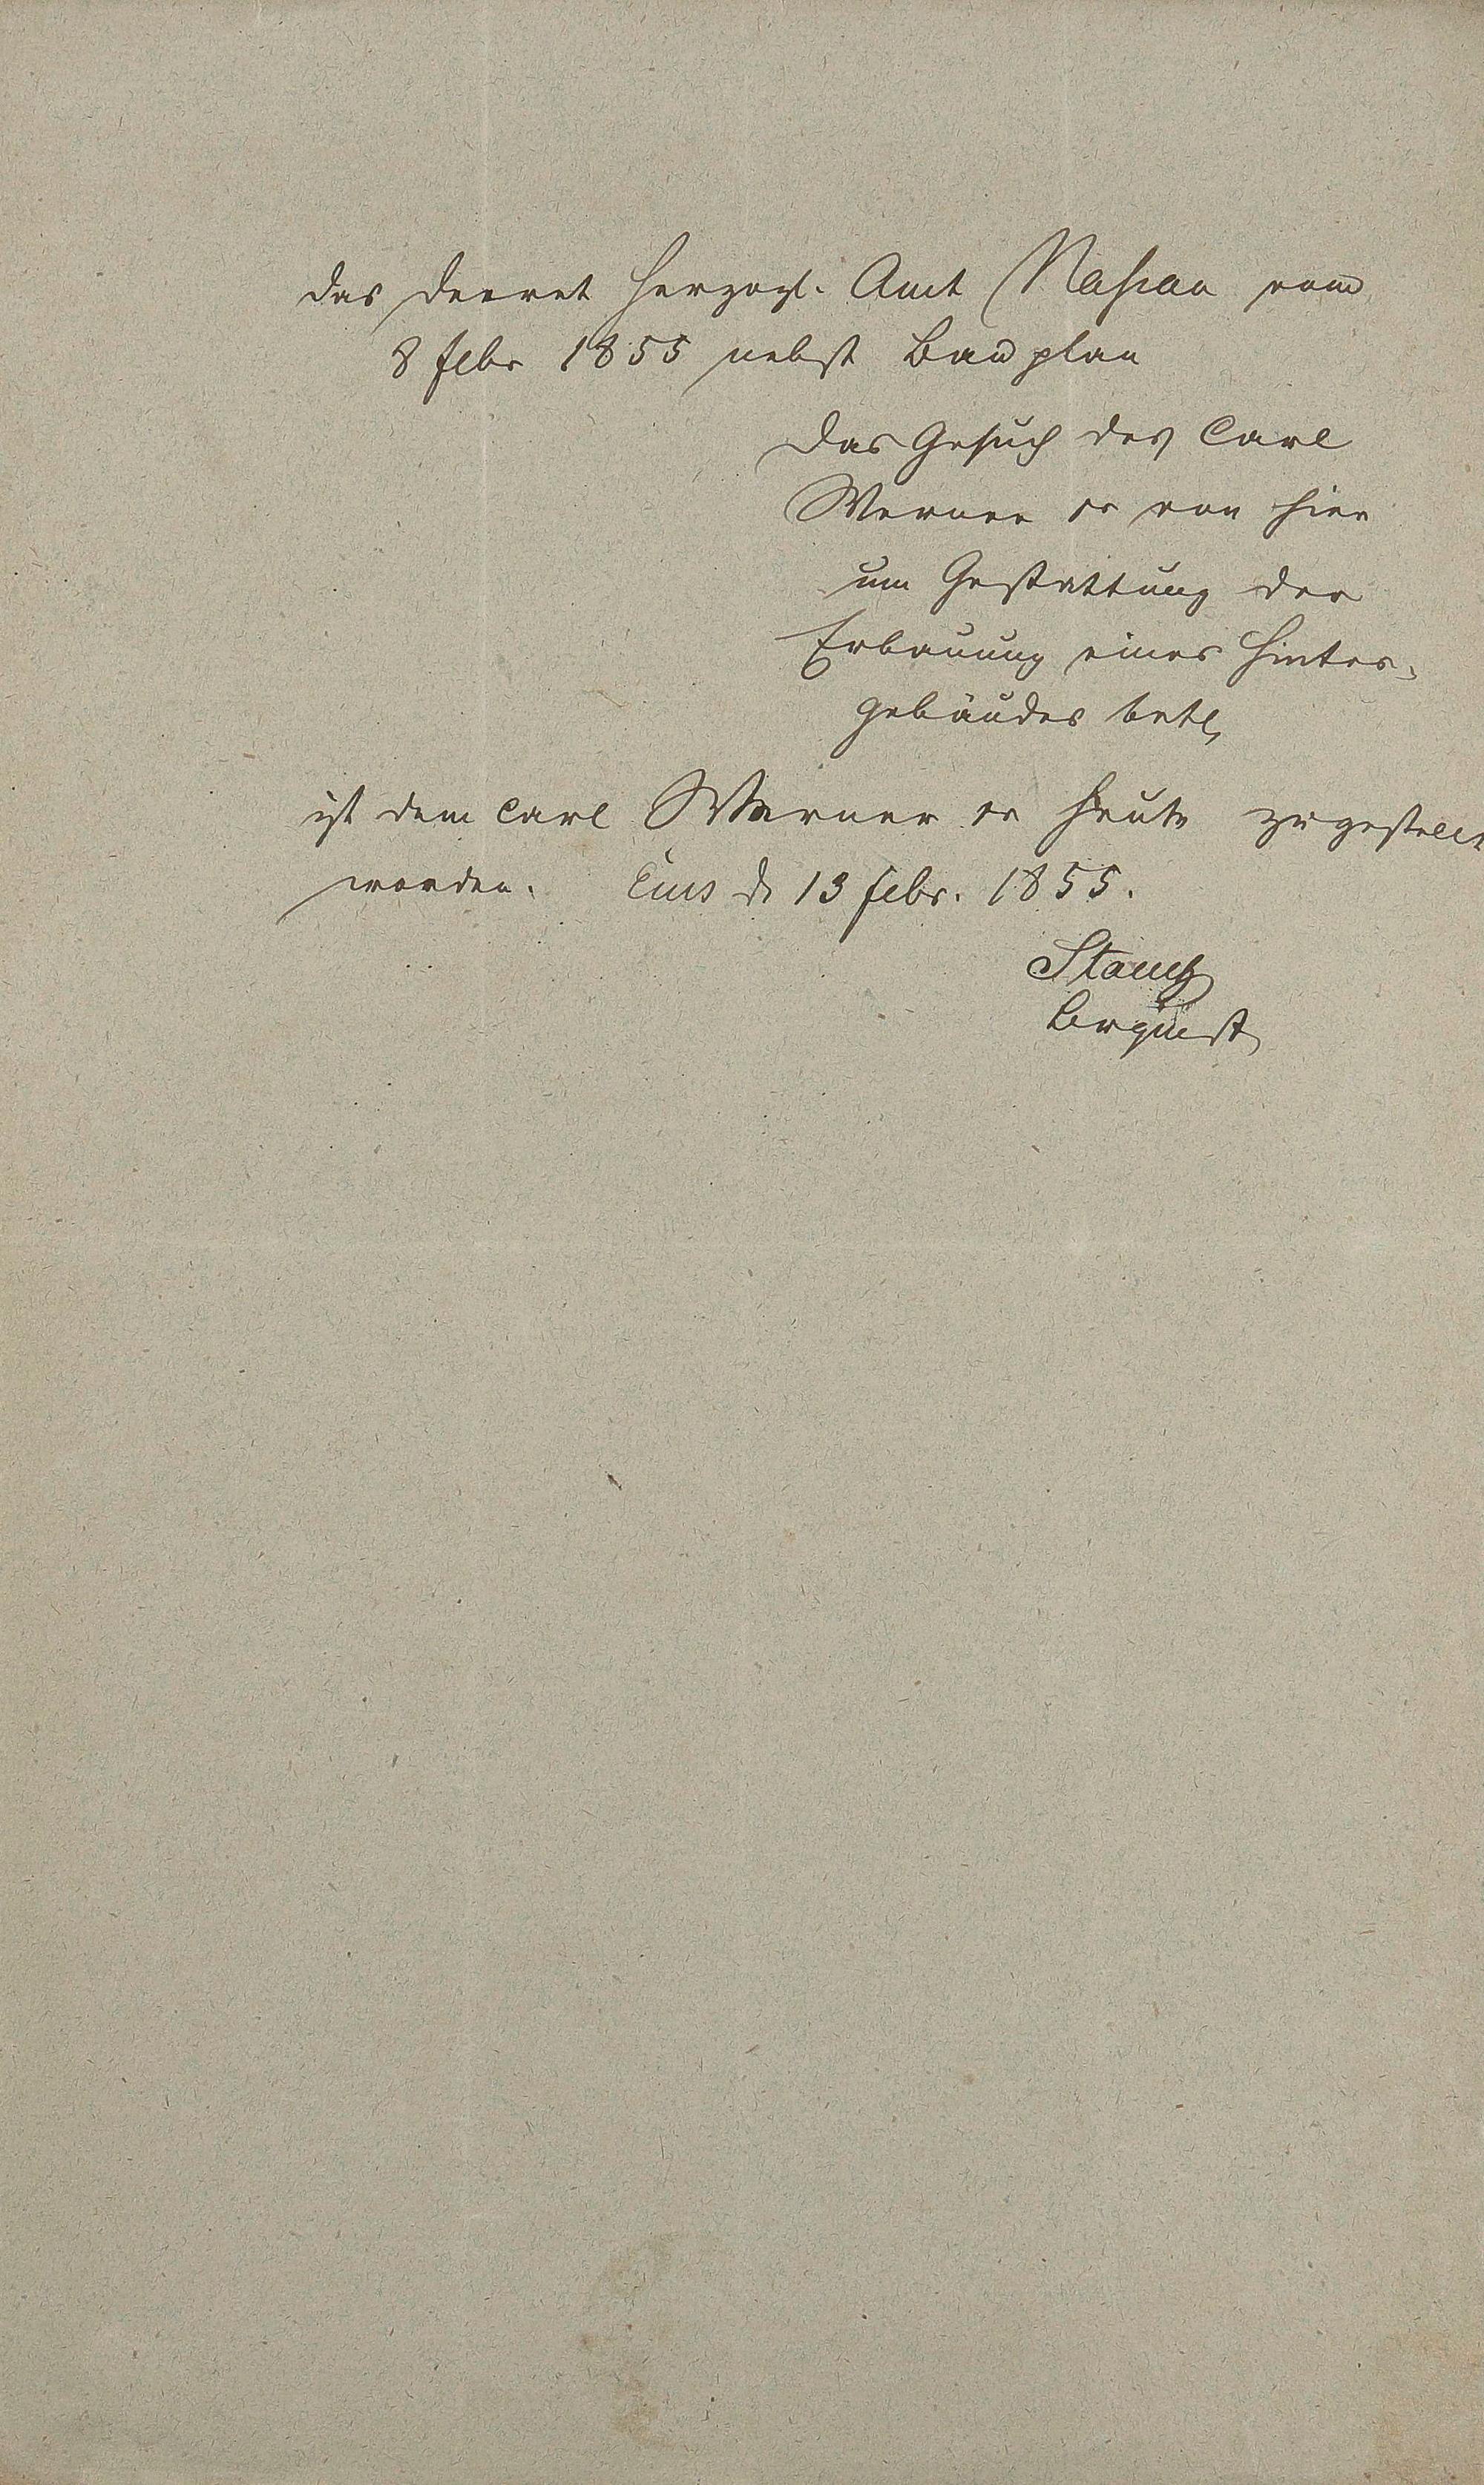 das Decret Herzogl. Amt Nassau vom
8 Febr 1855 nebst Bauplan
Das Gesuch des Carl
Werner er von hier
um Gestattung der
Erbauung eines Hinter-
gebäudes betr,
ist dem Carl Werner er heute zugestellt
worden. Ems d 13 Febr. 1855.